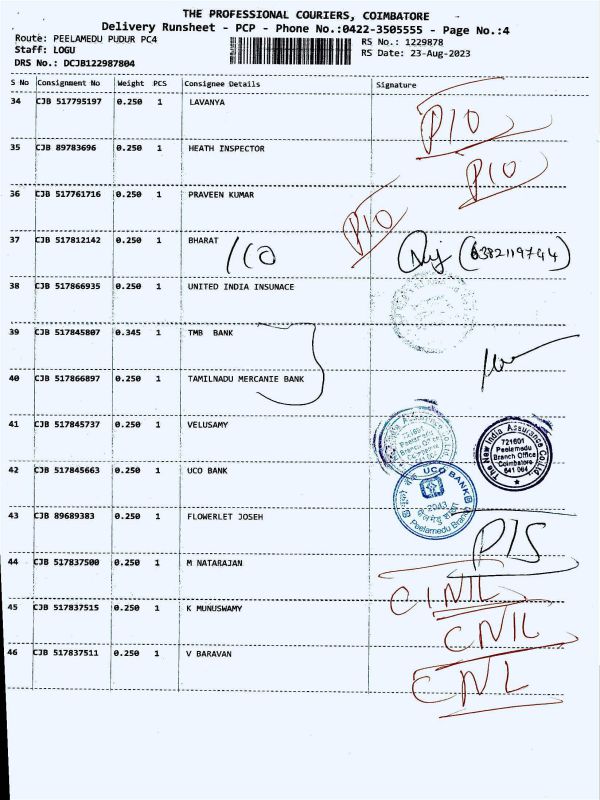 THE PROFESSIONAL COURIERS, COIMBATORE
Delivery Runsheet - PCP - Phone No.:0422-3505555 - Page No.:4
Route: PEELAMEDU PUDUR PC4
RS No.: 1229878
Staff: LOGU
RS Date: 23-Aug-2023
DRS No.: DCJB122987804
S No Consignment No Weight PCS Consignee Details Signature
34 CJB 517795197 0.250 1 LAVANYA
P10
35 CJB 89783696 0.250 1 HEATH INSPECTOR
P10
36 CJB 517761716 0.250 1 PRAVEEN KUMAR
P10
37 CJB 517812142 0.250 1 BHARAT
38 CJB 517866935 0.250 1 UNITED INDIA INSUNACE
39 CJB 517845807 0.345 1 TMB BANK
40 CJB 517866897 0.250 1 TAMILNADU MERCANIE BANK
41 CJB 517845737 0.250 1 VELUSAMY
721601
Peelamedu
Branch Office
The New India Assurance Co.Ltd
721601
Peelamedu
Branch Office
Coimbatore
641 004
42 CJB 517845663 0.250 1 UCO BANK
UCO BANK
2043
Peelamedu Branch
43 CJB 89689383 0.250 1 FLOWERLET JOSEH
PIS
44 CJB 517837500 0.250 1 M NATARAJAN
45 CJB 517837515 0.250 1 K MUNUSWAMY
CNIL
46 CJB 517837511 0.250 1 V BARAVAN
CNL